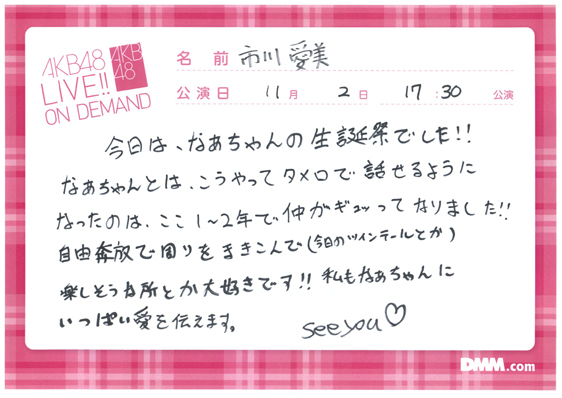 AKB48
LIVE!!
ON DEMAND
AKB
48
名前 市川愛美
公演日 11月 2日 17:30 公演
今日は、なあちゃんの生誕祭でした!!
なあちゃんとは、こうやってタメ口で話せるように
なったのは、ここ1~2年で仲がギュッってなりました!!
自由奔放で周りをまきこんで(今日のツインテールとか)
楽しそうな所とか大好きです!! 私もなあちゃんに
いっぱい愛を伝えます。
see you♡
DMM.com